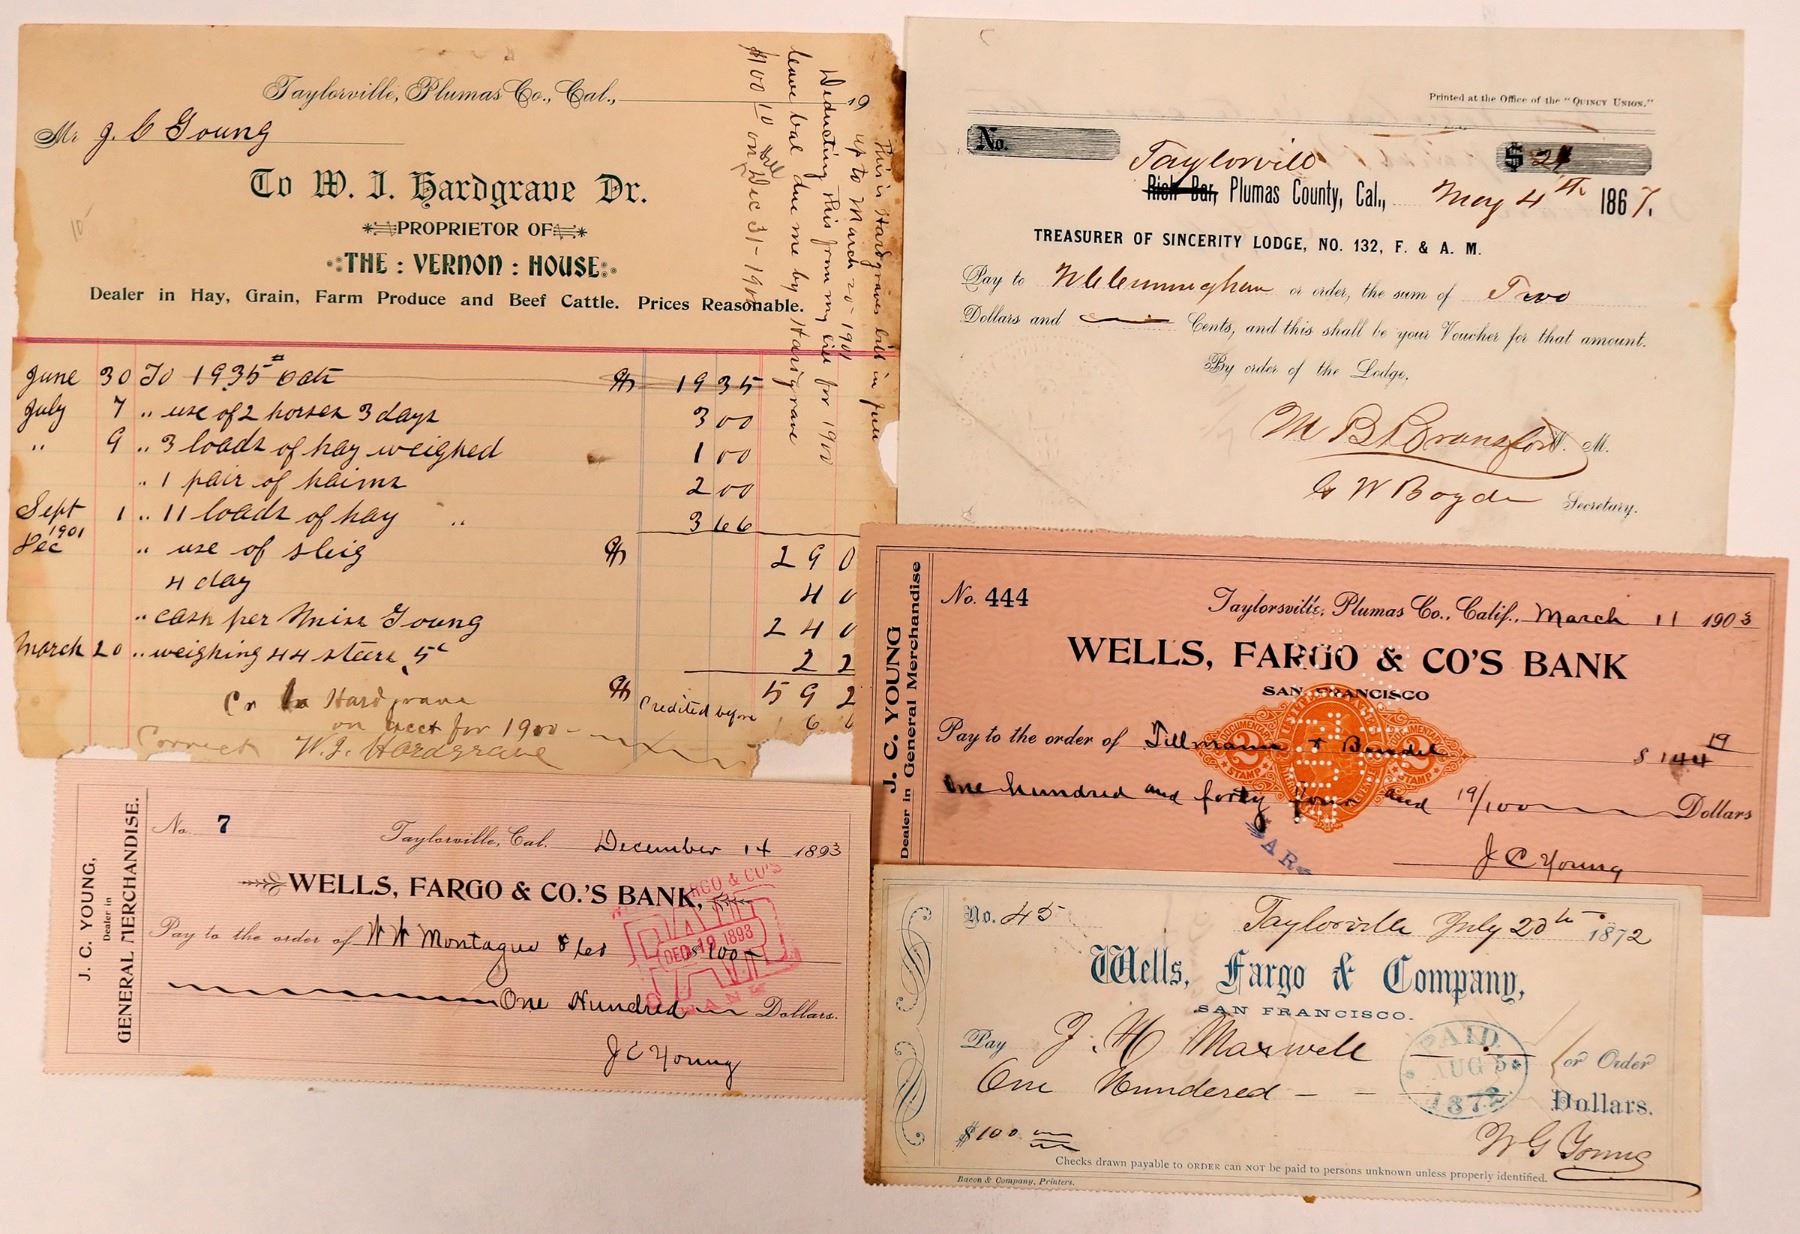 Taylorville, Plumas Co., Cal., 19
Mr J. C Young
To W. J. Hardgrave Dr.
PROPRIETOR OF
THE : VERNON : HOUSE
Dealer in Hay, Grain, Farm Produce and Beef Cattle. Prices Reasonable.
This is Hardgraves bill in full
up to March 20 - 1901
Deducting this from my bill for 1900
leave bal due me by Hardgrave
$100 10 on bill Dec 31 - 1900
June 30 To 1935 # oats 19 35
July 7 " use of 2 horses 3 days 3 00
" 9 " 3 loads of hay weighed 1 00
" 1 pair of haims 2 00
Sept 1 " 11 loads of hay " 3 66
1901
Dec " use of sleig 2 9 0
4 day 4 0
" cash per Miss Young 2 4 0
March 20 " weighing 44 steers 5c 2 2
Cr Hardgrave 5 9 2
on acct for 1900 - Credited before 6 6
Correct W. J. Hardgrave
Printed at the Office of the "QUINCY UNION."
No. $ 2
Taylorvill
Rich Bar, Plumas County, Cal., May 4th 1867.
TREASURER OF SINCERITY LODGE, NO. 132, F. & A. M.
Pay to W E Cunningham or order, the sum of Two
Dollars and Cents, and this shall be your Voucher for that amount.
By order of the Lodge,
M B Bransford W. M.
G W Boyden Secretary.
J. C. YOUNG
Dealer in General Merchandise
No. 444 Taylorsville, Plumas Co., Calif., March 11 1903
WELLS, FARGO & CO'S BANK
SAN FRANCISCO
Pay to the order of Tillmann & Bendel $ 144 19
DOCUMENTARY 2 STAMP DOCUMENTARY 2 STAMP
One hundred and forty four and 19/100 Dollars
MAR
J C Young
J. C. YOUNG,
Dealer in
GENERAL MERCHANDISE.
No. 7 Taylorville, Cal. December 14 1893
WELLS, FARGO & CO.'S BANK,
Pay to the order of W W Montague & Co $100
One Hundred Dollars.
J C Young
WELLS FARGO & CO'S
PAID
DEC 19 1893
BANK
No. 45 Taylorville July 20th 1872
Wells, Fargo & Company,
SAN FRANCISCO.
Pay J. H. Maxwell or Order
One Hundered - - Dollars.
PAID
AUG 5
1872
$100
W G Young
Checks drawn payable to ORDER can NOT be paid to persons unknown unless properly identified.
Bacon & Company, Printers.